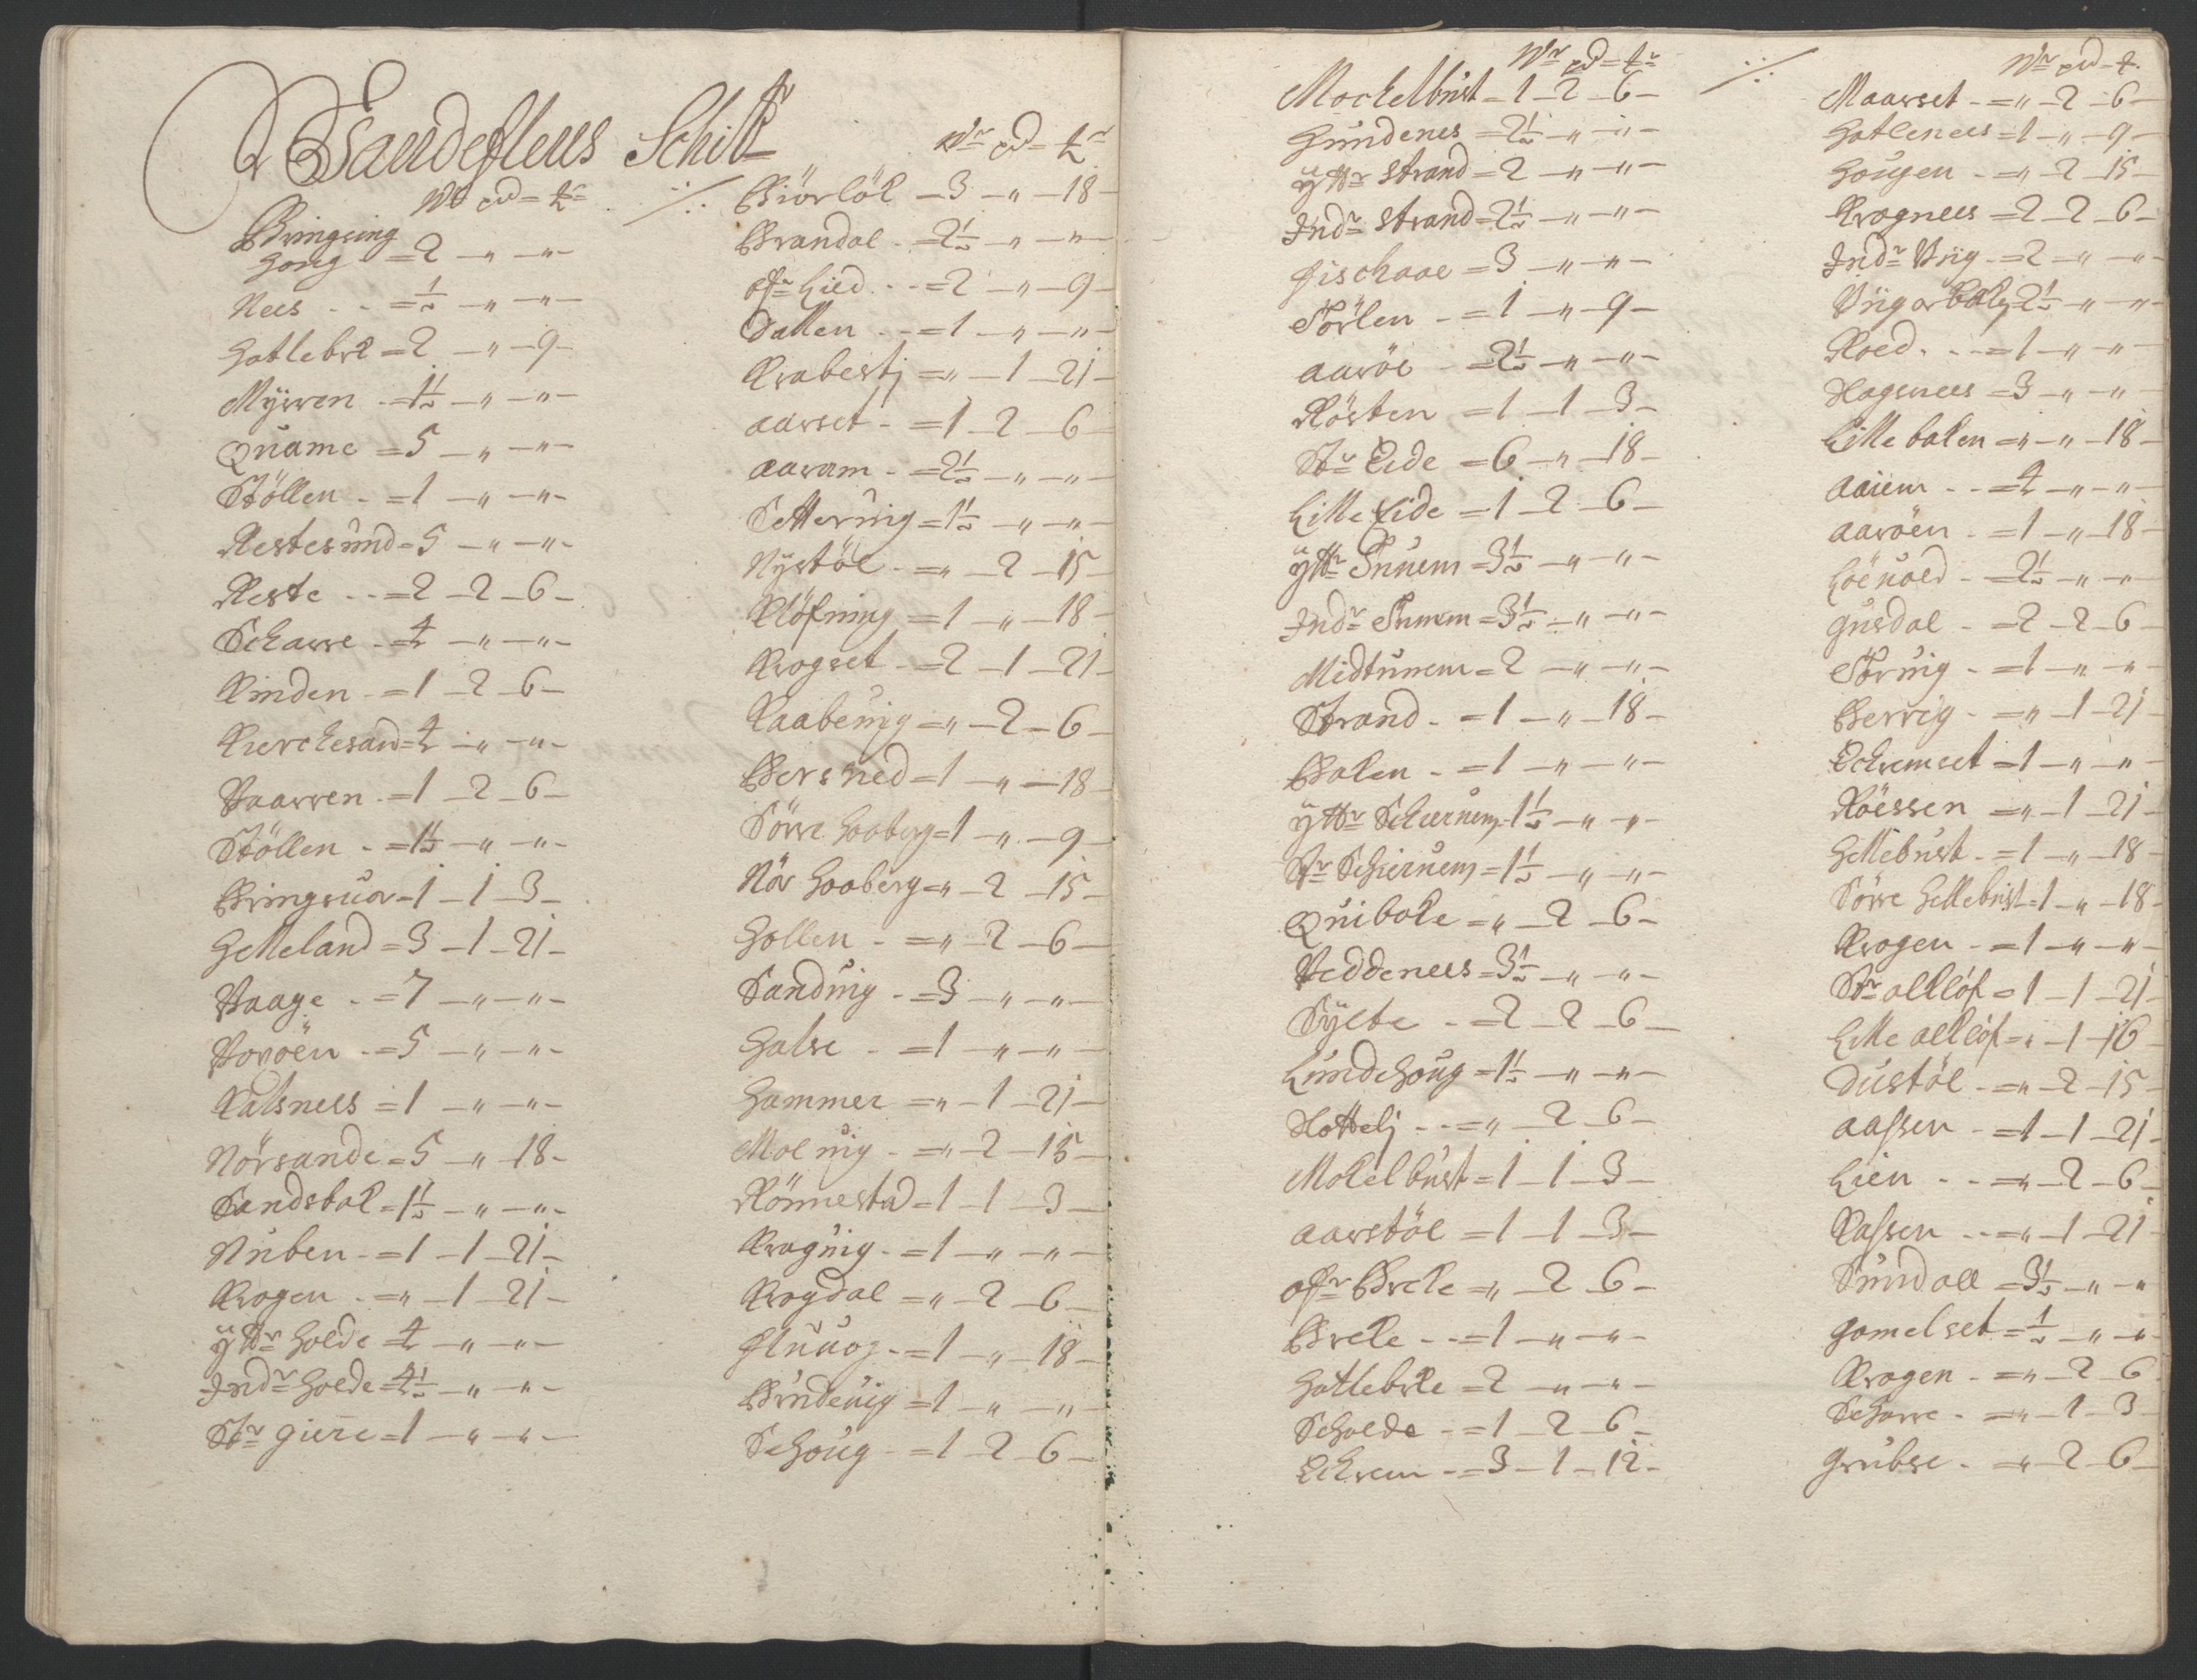 Vandeflens Schibr
Wr pd = tr
Bringsing
houg = 2 – „ – „ –
Nees - - = ½ – „ – „ –
Hatlebrk = 2 – „ – 9 –
Myrren - = 1½ – „ – „ –
Quame = 5 – „ – „ –
Stöllen - = 1 – „ – „ –
Restesund = 5 – „ – „ –
Reste - - = 2 – 2 – 6 –
Scharre - = 4 – „ – „ –
Rinden - = 1 – 2 – 6 –
Kierchesand = 4 – „ – „ –
Vaarren - = 1 – 2 – 6 –
Stöllen - = 1½ – „ – „ –
Bringsuor = 1 – 1 – 3 –
Helleland = 3 – 1 – 21 –
Vaage - = 7 – „ – „ –
Voröen - = 5 – „ – „ –
Kalsness = 1 – „ – „ –
Nörsande = 5 – „ – 18 –
Sandsbak = 1½ – „ – „ –
Nuben - = 1 – 1 – 21 –
Krogen - = „ – 1 – 21 –
ÿttr holde = 4 – „ – „ –
Indr holde = 4½ – „ – „ –
Str giere = 1 – „ – „ –
Wr pd = tr
Biörlök – 3 – „ – 18 –
Brandal - = 2½ – „ – „ –
ofr Lied - - = 2 – „ – 9 –
Dallen - - = 1 – „ – „ –
Krabestj = „ – 1 – 21 –
aarset - = 1 – 2 – 6 –
aaram - = 2½ – „ – „ –
Setternig = 1½ – „ – „ –
Nystöl - = „ – 2 – 15 –
Klöfning = 1 – „ – 18 –
Krogset - = 2 – 1 – 21 –
Kaabenig = „ – 2 – 6 –
Bersned = 1 – „ – 18 –
Sörre hoaberg = 1 – „ – 9 –
Nör hoaberg = „ – 2 – 15 –
Hollen - = „ – 2 – 6 –
Sanduig - = 3 – „ – „ –
Halse - = 1 – „ – „ –
Hammer = „ – 1 – 21 –
Moluig - = „ – 2 – 15 –
Rönnestad = 1 – 1 – 3 –
Kraguig - = 1 – „ – „ –
Krogdal = „ – 2 – 6 –
fluuog - = 1 – „ – 18 –
Bundeuig = 1 – „ – „ –
Schoug - = 1 – 2 – 6 –
Wr pd = tr
Mochelbust – 1 – 2 – 6 –
Gundenes = 2½ – „ – „ –
ÿttr strand = 2 – „ – „ –
Indr strand = 2½ – „ – „ –
fischaae = 3 – „ – „ –
Törlen - = 1 – „ – 9 –
aaröe - = 2½ – „ – „ –
Rösten = 1 – 1 – 3 –
Str Eide = 6 – „ – 18 –
Lille Eide = 1 – 2 – 6 –
ÿttr Tunem = 3½ – „ – „ –
Indr Tunem = 3½ – „ – „ –
Midtunem = 2 – „ – „ –
Strand - = 1 – „ – 18 –
Baken - = 1 – „ – „ –
ÿttr Schernem = 1½ – „ – „ –
Str Schiernem = 1½ – „ – „ –
Quibake = „ – 2 – 6 –
Veddenees = 3½ – „ – „ –
Sÿlte - = 2 – 2 – 6 –
Lundehoug = 1½ – „ – „ –
Hottelj - - = „ – 2 – 6 –
Mokelbust = 1 – 1 – 3 –
aarstöl = 1 – 1 – 3 –
ofr Breke = „ – 2 – 6 –
Breke - - = 1 – „ – „ –
Hatlebrke = 2 – „ – „ –
Scholde - = 1 – 2 – 6 –
Eckrem - = 3 – 1 – 12 –
Wr pd = t
Maarset - = „ – 2 – 6 –
Hatlenees = 1 – „ – 9 –
Hougen - = „ – 2 – 15 –
Kragnees = 2 – 2 – 6 –
Indr Vüg - = 2 – „ – „ –
Roed - - - = 1 – „ – „ –
Hagenees = 3 – „ – „ –
Lille baken = „ – „ – 18 –
aaiem - - = 4 – „ – „ –
aaröen - = 1 – „ – 18 –
Löeuold - = 2½ – „ – „ –
Gusdal - = 2 – 2 – 6 –
Toruig - = 1 – „ – „ –
Berrig - = „ – 1 – 21 –
Eckremset = 1 – „ – „ –
Röessen = „ – 1 – 21 –
Hellebust - = 1 – „ – 18 –
Sörre Hellebust = 1 – „ – 18 –
Krogen - = 1 – „ – „ –
Str alklöf = 1 – 1 – 21 –
Lille alklöf = „ – 1 – 16 –
Dustöl - = „ – 2 – 15 –
aassen - = 1 – 1 – 21 –
Lien - - = „ – 2 – 6 –
Kassen - - = „ – 1 – 21 –
Sundall = 3½ – „ – „
Gamelset = ½ – „ – „
Krogen - = „ – 2 – 6
Scharre - = „ – 1 – 3
Grubse - = „ – 2 – 6 –